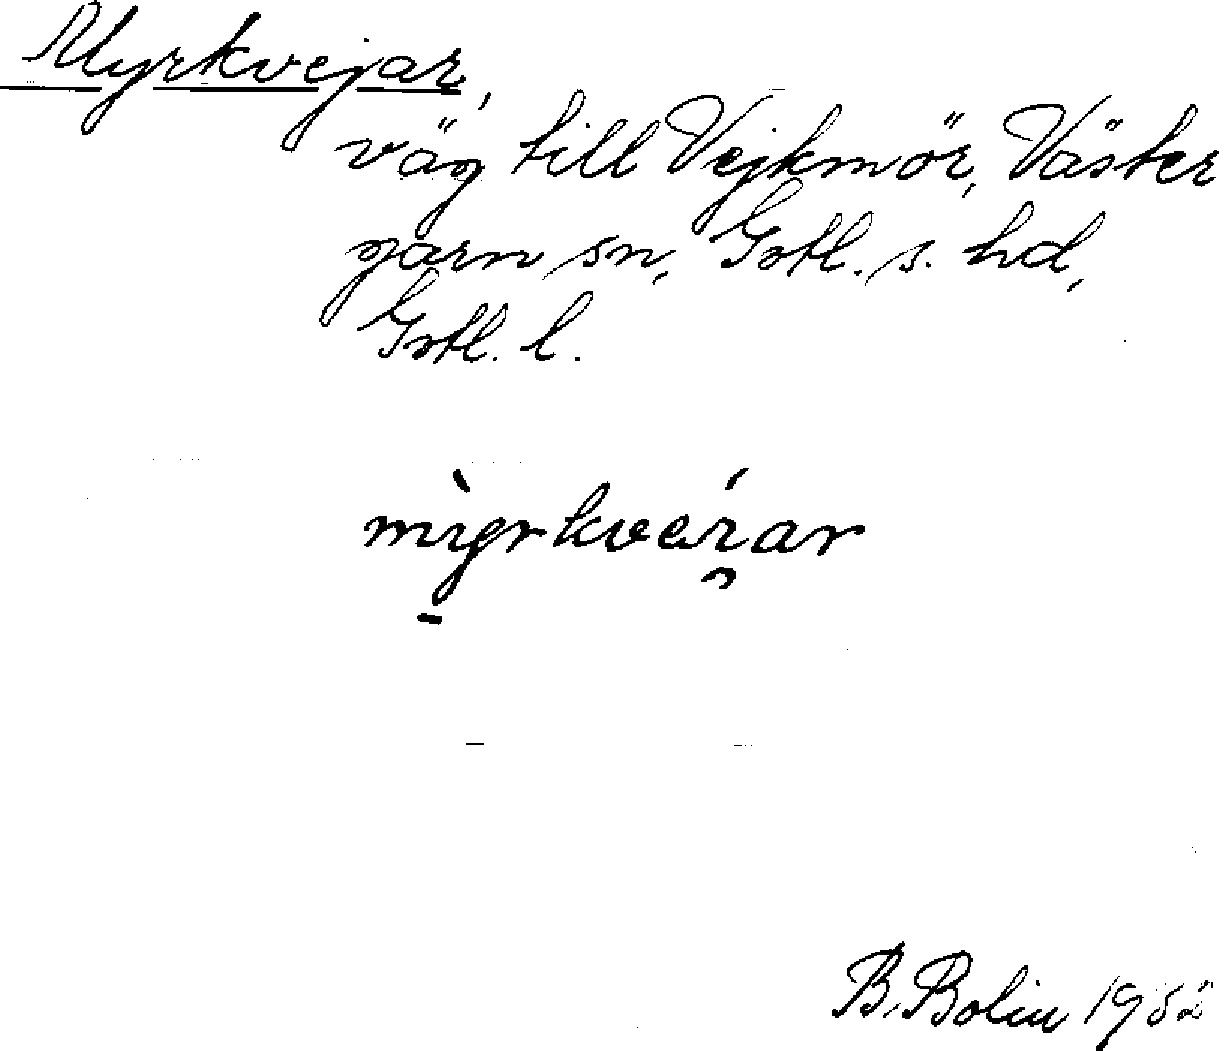 Myrkvejar,
väg till Vejkmör, Väster
garn sn, Gotl. s. hd,
Gotl. l.
mỳrkveı̯́ar
B. Bolin 1982